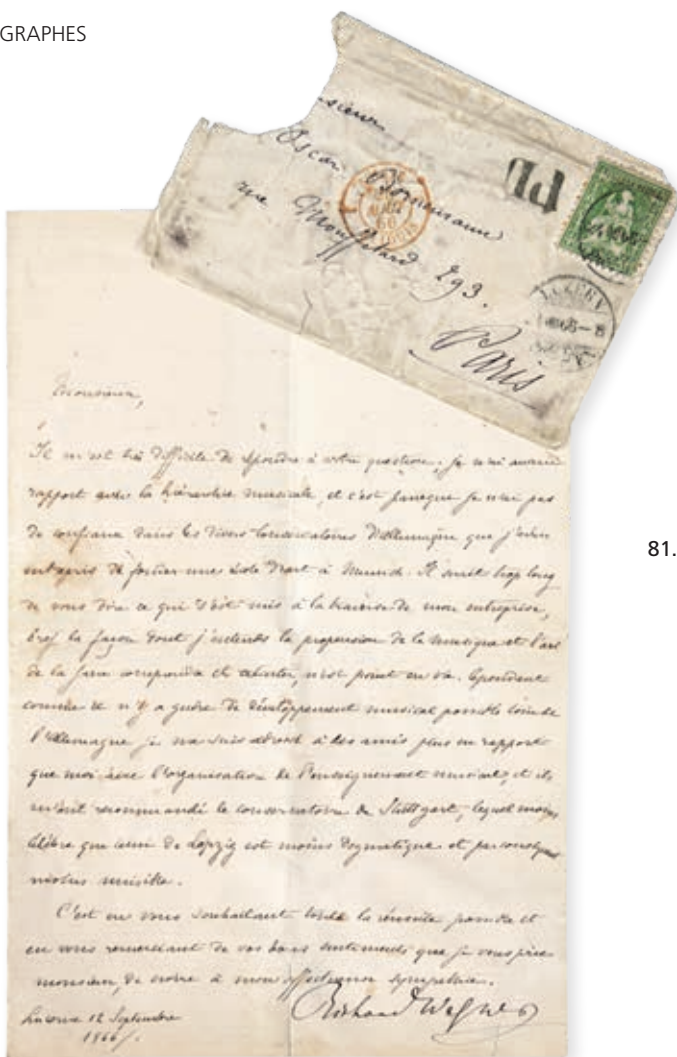 GRAPHES
sieur
Oscar
rue Mouffetard 293.
Paris
PD
LUZERN
81.
Monsieur,
Il m'est très difficile de répondre à votre question; je n'ai aucun
rapport avec la hiérarchie musicale, et c'est parceque je n'ai pas
de confiance dans les divers Conservatoires d'Allemagne que j'avais
entrepris de fonder une école d'art à Munich. Il serait trop long
de vous dire ce qui s'est mis à la traverse de mon entreprise,
bref la façon dont j'entends la propension de la musique et l'art
de la faire comprendre et n'est point en vue. Cependant
comme il n'y a guère de développement musical possible loin de
l'Allemagne je me suis adressé à des amis plus en rapport
que moi avec l'organisation de l'enseignement musical, et ils
m'ont recommandé le conservatoire de Stuttgart, lequel moins
célèbre que celui de Leipzig est moins dogmatique et par conséquent
moins nuisible.
C'est en vous souhaitant toute la réussite possible et
en vous remerciant de vos bons sentiments que je vous prie
monsieur, de croire à mon affectueuse sympathie.
Lucerne 12 Septembre
1866.
Richard Wagner